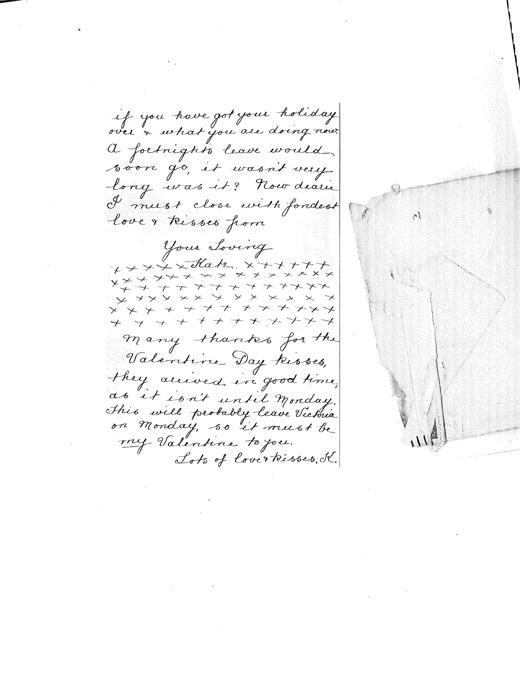 if you have got your holiday
over & what you are doing now.
A fortnights leave would
soon go, it wasn't very
long was it? Now dearie
I must close with fondest
love & kisses from
Your Loving
x x x x x Kate x x x x x x
x x x x x x x x x x x x x
x x x x x x x x x x x x
x x x x x x x x x x x
x x x x x x x x x x x x
x x x x x x x x x x x
Many thanks for the
Valentine Day kisses,
they arrived in good time,
as it isn't until Monday.
This will probably leave Victoria
on Monday, so it must be
my Valentine to you.
Lots of love & kisses, K.